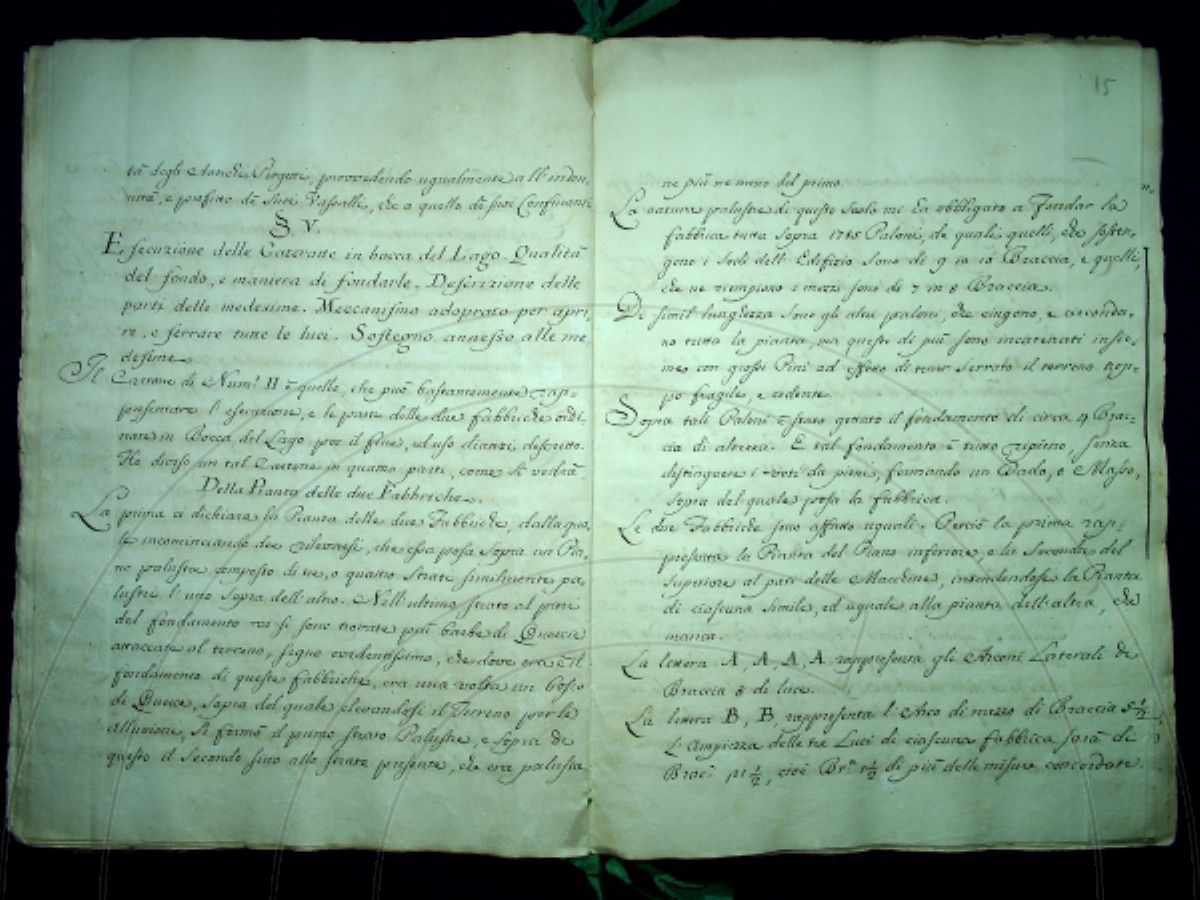 tà degli Antichi Progetti, provvedendo ugualmente all'inden-
nità, e profitto de' suoi Vassalli, che a quello de' suoi Confinanti
§. V.
Esecuzione delle Cateratte in bocca del Lago. Qualità
del fondo, e maniera di fondarle. Descrizione delle
parti delle medesime. Meccanismo adoprato per apri-
re, e serrare tutte le luci. Sostegno annesso alle me
desime.
Il Cartone di Num.º II è quello, che può bastantemente rap-
presentare l'esecuzione, e le parti delle due fabbriche ordi-
nate in Bocca del Lago per il fine, ed uso dianzi descritto.
Ho diviso un tal Cartone in quattro parti, come si vedrà.
Della Pianta delle due Fabbriche.
La prima ci dichiara la Pianta delle due Fabbriche, dalla qua-
le incominciando dee rilevarsi, che essa posa sopra un Pia-
no palustre composto di tre, o quattro strati similmente pa
lustri l'uno sopra dell'altro. Nell'ultimo strato al pari
del fondamento vi si sono trovate più barbe di Querce
attaccate al terreno, segno evidentissimo, che dove ora è il
fondamento di queste fabbriche, era una volta un bosco
di Querce, sopra del quale elevandosi il Terreno per le
alluvioni, si formò il primo strato Palustre, e sopra di
questo il secondo fino allo strato presente, che era palustre
15
ne più ne meno del primo.
La natura palustre di questo suolo mi ha obbligato a Fondar la
fabbrica tutta sopra 1785 Paloni, de quali quelli, che sosten-
gono i sodi dell'Edifizio sono di 9 in 10 Braccia, e quelli,
che ne riempiono i mezzi sono di 7 in 8 Braccia.
Di simil lunghezza sono gli altri paloni, che cingono, e circonda-
no tutta la pianta, ma questi di più sono incatenati insie-
me con grossi Pini ad effetto di tener serrato il terreno trop-
po fragile, e cedente.
Sopra tali Paloni è stato gettato il fondamento di circa 4 Brac-
cia di altezza. E tal fondamento è tutto ripieno, senza
distinguere i vuoti da pieni, formando un Dado, o Masso,
sopra del quale posa la fabbrica.
Le due Fabbriche sono affatto uguali. Perciò la prima rap-
presenta la Pianta del Piano inferiore, e la seconda del
superiore al pari delle Macchine, intendendosi la Pianta
di ciascuna simile, ed uguale alla pianta dell'altra, che
manca.
La lettera A, A, A, A rappresenta gli Arconi Laterali di
Braccia 8 di luce.
La lettera B, B, rappresenta l'Arco di mezzo di Braccia 5½
L'Ampiezza delle tre Luci di ciascuna fabbrica sarà di
Brac.ª 21½, cioè Br.ª 1½ di più delle misure concordate.